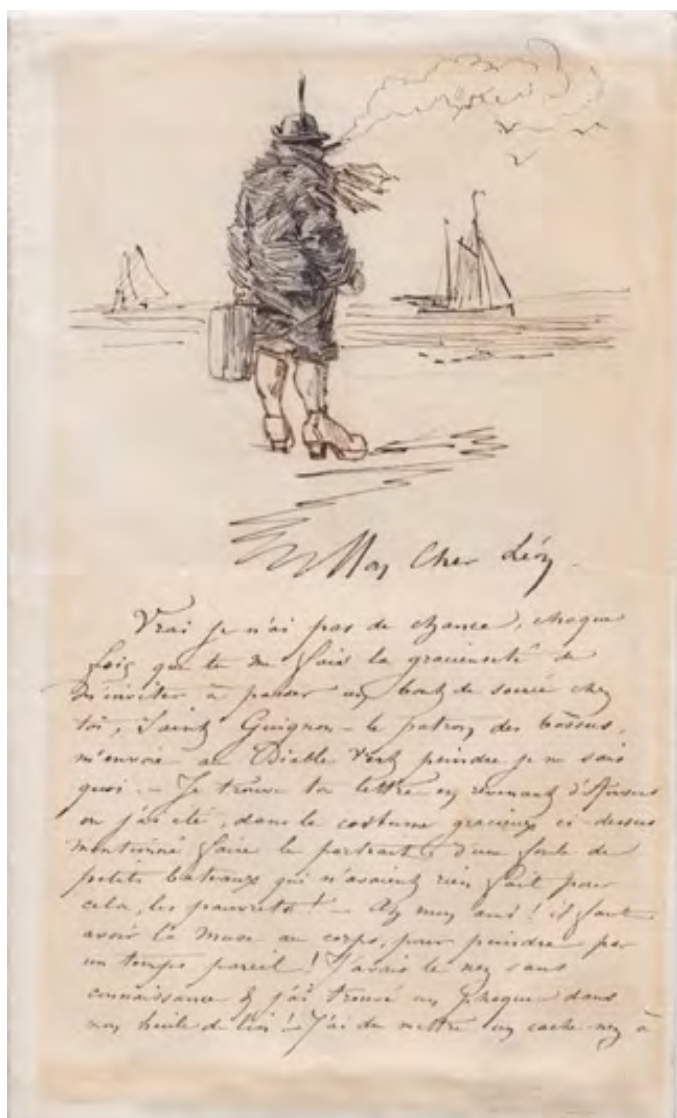 Mon Cher Léon.
Vrai je n'ai pas de chance, chaque
fois que tu me fais la gracieuseté de
m'inviter à passer un bout de soirée chez
toi, Saint Guignon – le patron des bossus,
m'envoie au Diable Vert peindre je ne sais
quoi. – Je trouve ta lettre en revenant d'Anvers
ou j'ai été, dans le costume gracieux ci-dessus
mentionné faire le portrait d'une foule de
petits bateaux qui n'avaient rien fait pour
cela, les pauvrets! – Ah mon ami! il faut
avoir la Muse au corps, pour peindre par
un temps pareil! J'avais le nez sans
connaissance & j'ai trouvé un phoque dans
mon huile de lin! – J'ai du mettre un cache-nez à